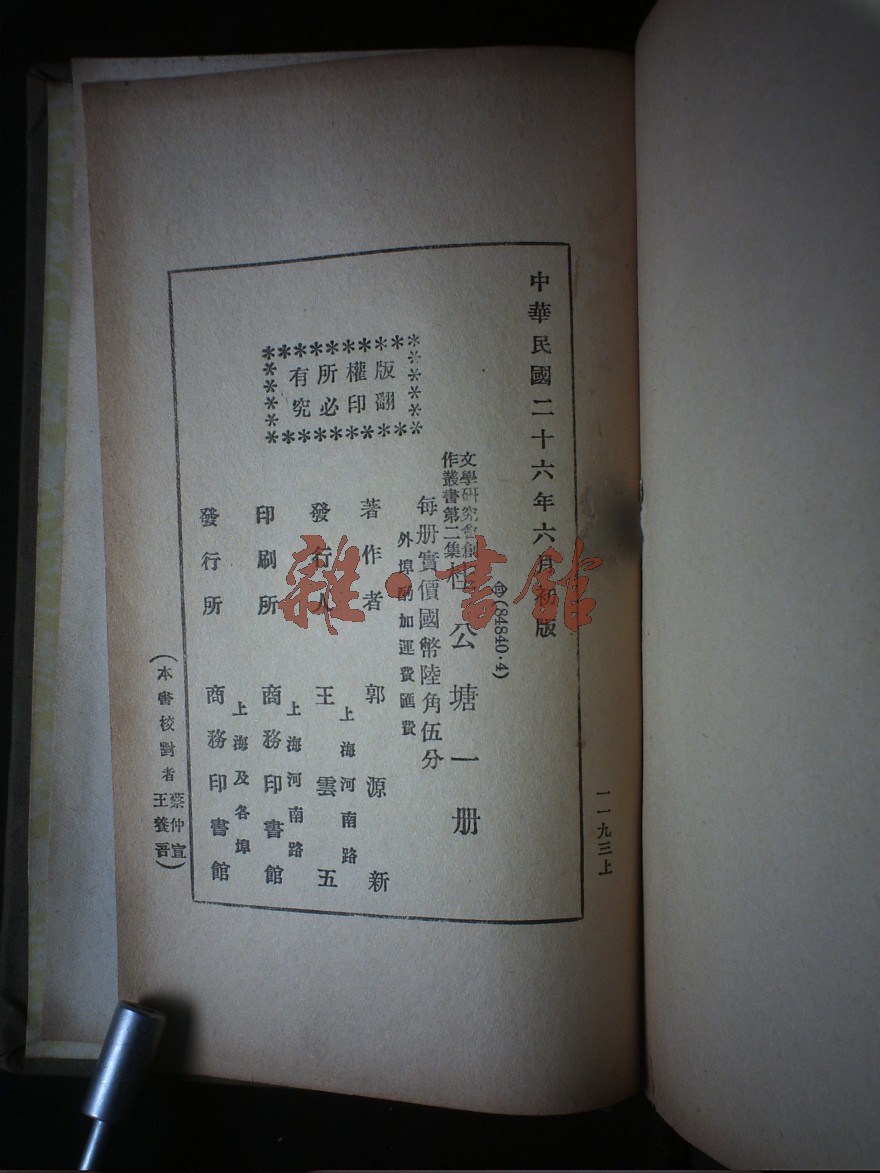 中華民國二十六年六月初版
一一九三上
㊥(84840·4)
文學研究會創
作叢書第二集
桂公塘一册
每册實價國幣陸角伍分
外埠酌加運費匯費
版權所有
翻印必究
著作者 郭源新
發行人 王雲五
上海河南路
印刷所 商務印書館
上海河南路
發行所 商務印書館
上海及各埠
(本書校對者 蔡仲宣 王養吾)
雜·書館